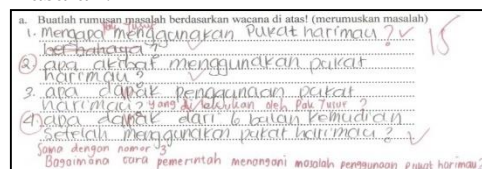 a. Buatlah rumusan masalah berdasarkan wacana di atas! (merumuskan masalah)
1. mengapa Pak Tutur menggunakan Pukat harimau ? 15
berbahaya ?
2 apa akibat menggunakan pukat
harimau ?
3. apa dapak penggunaan pukat
harimau ? yang dilakukan oleh Pak Tutur ?
4 apa dampak dari 6 bulan kemudian
setelah menggunakan pukat harimau ?
Sama dengan nomor 3
Bagaimana cara pemerintah menangani masalah penggunaan pukat harimau?